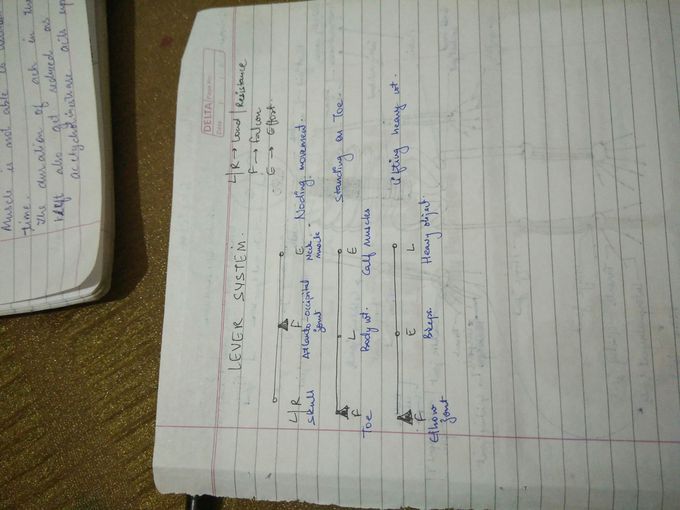 Muscle is not able to
time.
The duration of ach in the
also get reduced as
acetylcholinesterase acts upon
DELTA
Date
LEVER SYSTEM.
L/R → Load/Resistance
F → Falcon
E → Effort.
L/R F E Noding movement.
Skull Atlanto-occipital joint Neck muscle
F L E Standing on Toe
Toe Body wt. Calf muscles
F E L lifting heavy wt.
Elbow joint Biceps Heavy object.